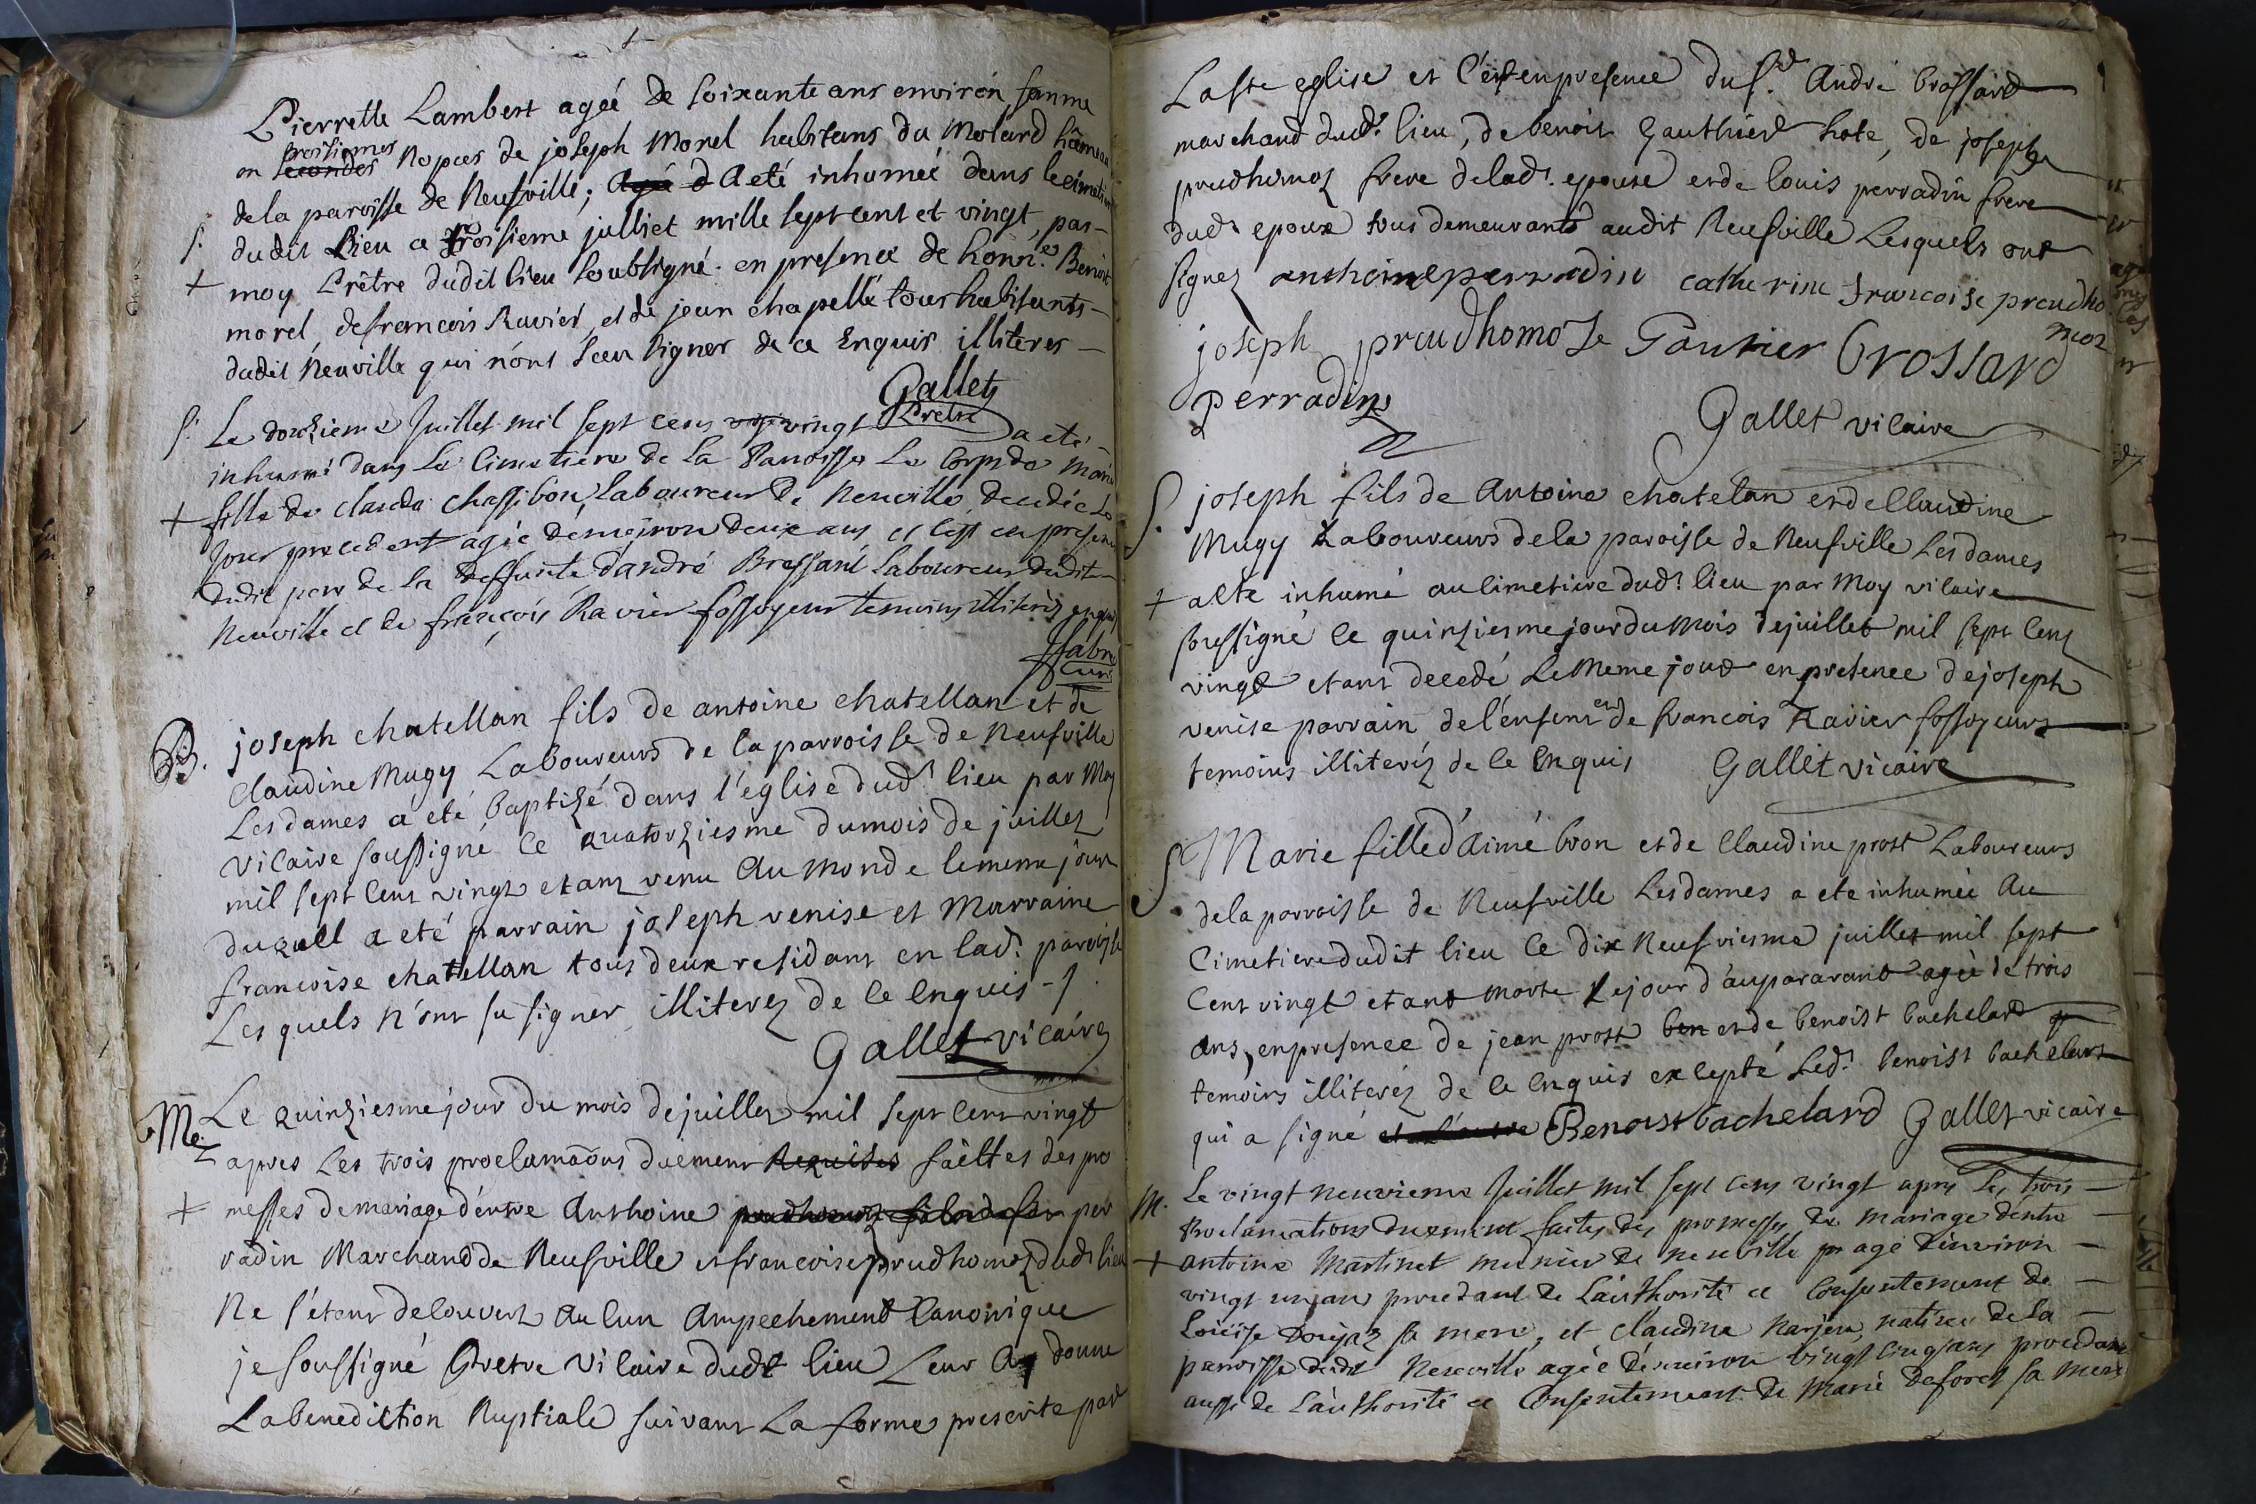 Pierrette Lambert agée de soixante ans environ, femme
en troisiemes secondes Nopces de joseph Morel habitans du Molard hameau
de la paroisse de Neufville; Agée d A eté inhumée dans le cimetiere
S. dudit Lieu ce troisieme julliet mille sept cent et vingt, par
+ moy Prêtre dudit lieu soubsigné. en presence de honn.es Benoit
morel, de francois Ravier, et de jean chapelle tous habitants
dudit Neuville qui n'ont sceu signer de ce Enquis illiteres
Gallet
Prêtre
S. Le douzieme Juillet mil sept cens vingt a eté
inhumé dans Le Cimetiere de la Paroisse Le Corps de Marie
+ fille de claude chassibon Laboureur de Neuville decedée Le
Jour precedent agée d'environ deux ans et c'est en presence
dudit pere de la deffunte d'andré Bressand Laboureur dudit
Neuville et de françois Ravier fossoyeur temoins illiterés enquis
ffabre
curé
B. joseph chatellan fils de antoine chatellan et de
Claudine Mugy Laboureurs de la parroisse de Neufville
Les dames a eté baptizé dans l'église dud.t lieu par Moy
Vicaire soussigné ce quatorziesme du mois de juillet
mil sept cent vingt etant venu au monde le meme jour
duquel a eté parrain joseph venise et Marraine
francoise chatellan tous deux residant en lad.t paroisse
Les quels n'ont su signer illiterez de ce enquis
Gallet vicaire
M.e Le quinziesme jour du mois de juillet mil sept cent vingt
apres Les trois proclamaõns duement Requises faittes des pro
+ messes de mariage d'entre Anthoine per
radin Marchand de Neufville et francoise prudhomoz dud.t lieu
Ne s'étant decouvert Aucun Ampechement Canonique
je soussigné Pretre Vicaire dudt lieu Leur Ay donné
La benediction Nuptiale suivant La formes prescrite par
La ste eglise et c'est en presence du s.r André brossard
marchand dud.t lieu, de benoit Gauthier hote, de joseph
prudhomoz frere de lad.t epouse et de louis perradin frere
dud.t epoux tous demeurants audit Neufville Lesquels ont
signez anthoine perradin catherine francoise preudho
moz
joseph preudhomoz Gautier Brossard
Perradin
Gallet vicaire
S. joseph fils de Antoine chatelan et de Claudine
Mugy Laboureurs de la paroisse de Neufville Les dames
+ a ete inhumé au cimetiere dud.t lieu par Moy vicaire
soussigné ce quinziesme jour du mois de juillet mil sept cent
vingt etant decedé Le meme jour en presence de joseph
venise parrain de l'enfent et de francois Ravier fossoyeurs
temoins illiteréz de ce enquis Gallet vicaire
S Marie fille d'aimé bron et de Claudine prost Laboureurs
de la parroisse de Neufville Les dames a ete inhumée Au
Cimetiere dudit lieu ce dix Neufviesme juillet mil sept
Cent vingt etant morte Le jour d'auparavant agée de trois
ans, en presence de jean prost ben et de benoist bachelard
temoins illiteréz de ce enquis excepté Led.t benoist bachelard
qui a signé et l'autre Benoist bachelard Gallet vicaire
M. Le vingt neuvieme Juillet mil sept cens vingt apres Les trois
Proclamations duement faites des promesses de mariage dentre
+ antoine Martinet munier de neuville agé d'environ
vingt un ans procedant de L'authorité et Consentement de
Loüise sa mere, et Claudine Narjeu, native de la
paroisse dudit Neuville agée d'environ vingt cinq ans procedant
aussi de L'authorité et Consentement de Marie deforet sa mere